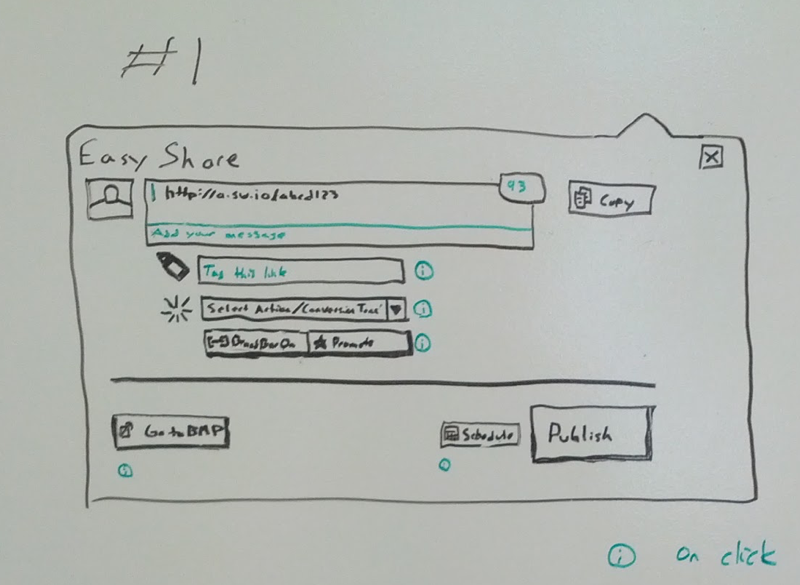 #1
Easy Share
http://a.sw.io/abcd123
93
Copy
Add your message
Tag this link
Select Action/Conversion
On
Promote
Go to BMP
Schedule
Publish
i on click